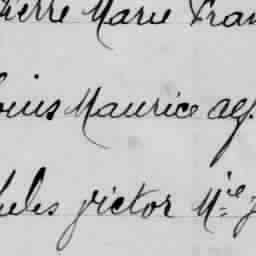 Pierre Marie Fran
ouis Maurice alf
ules victor M.ie J